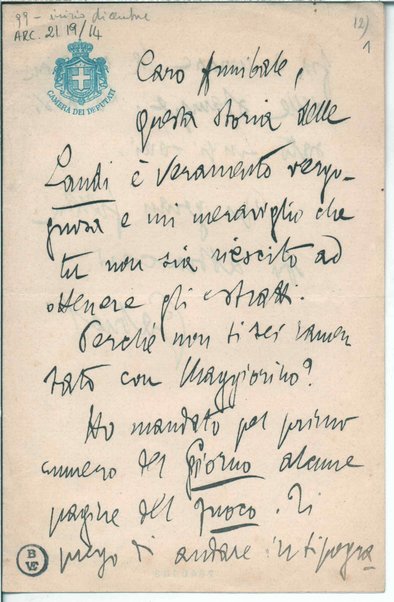 99 - inizio dicembre
ARC. 21 19/14
12)
1
CAMERA DEI DEPUTATI
Caro Annibale,
questa storia delle
Laudi è veramente vergo-
gnosa e mi meraviglio che
tu non sia riescito ad
ottenere gli estratti.
Perché non ti sei lamen
tato con Maggiorino?
Ho mandato pel primo
numero del Giorno alcune
pagine del Fuoco. Ti
prego di andare in tipogra
B
VE